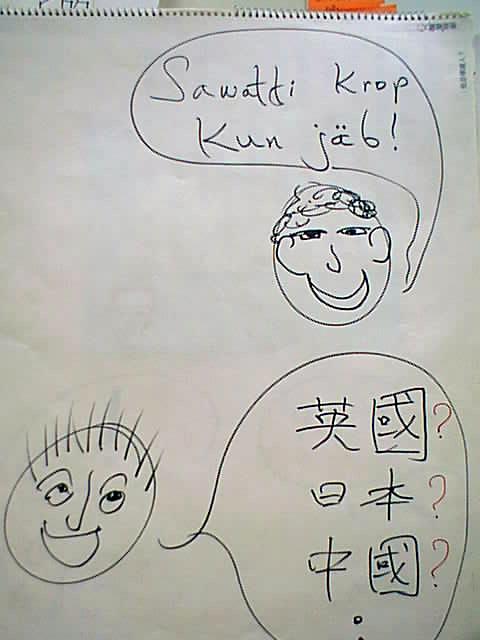 Sawatti krop
Kun jäb!
英國?
日本?
中國?